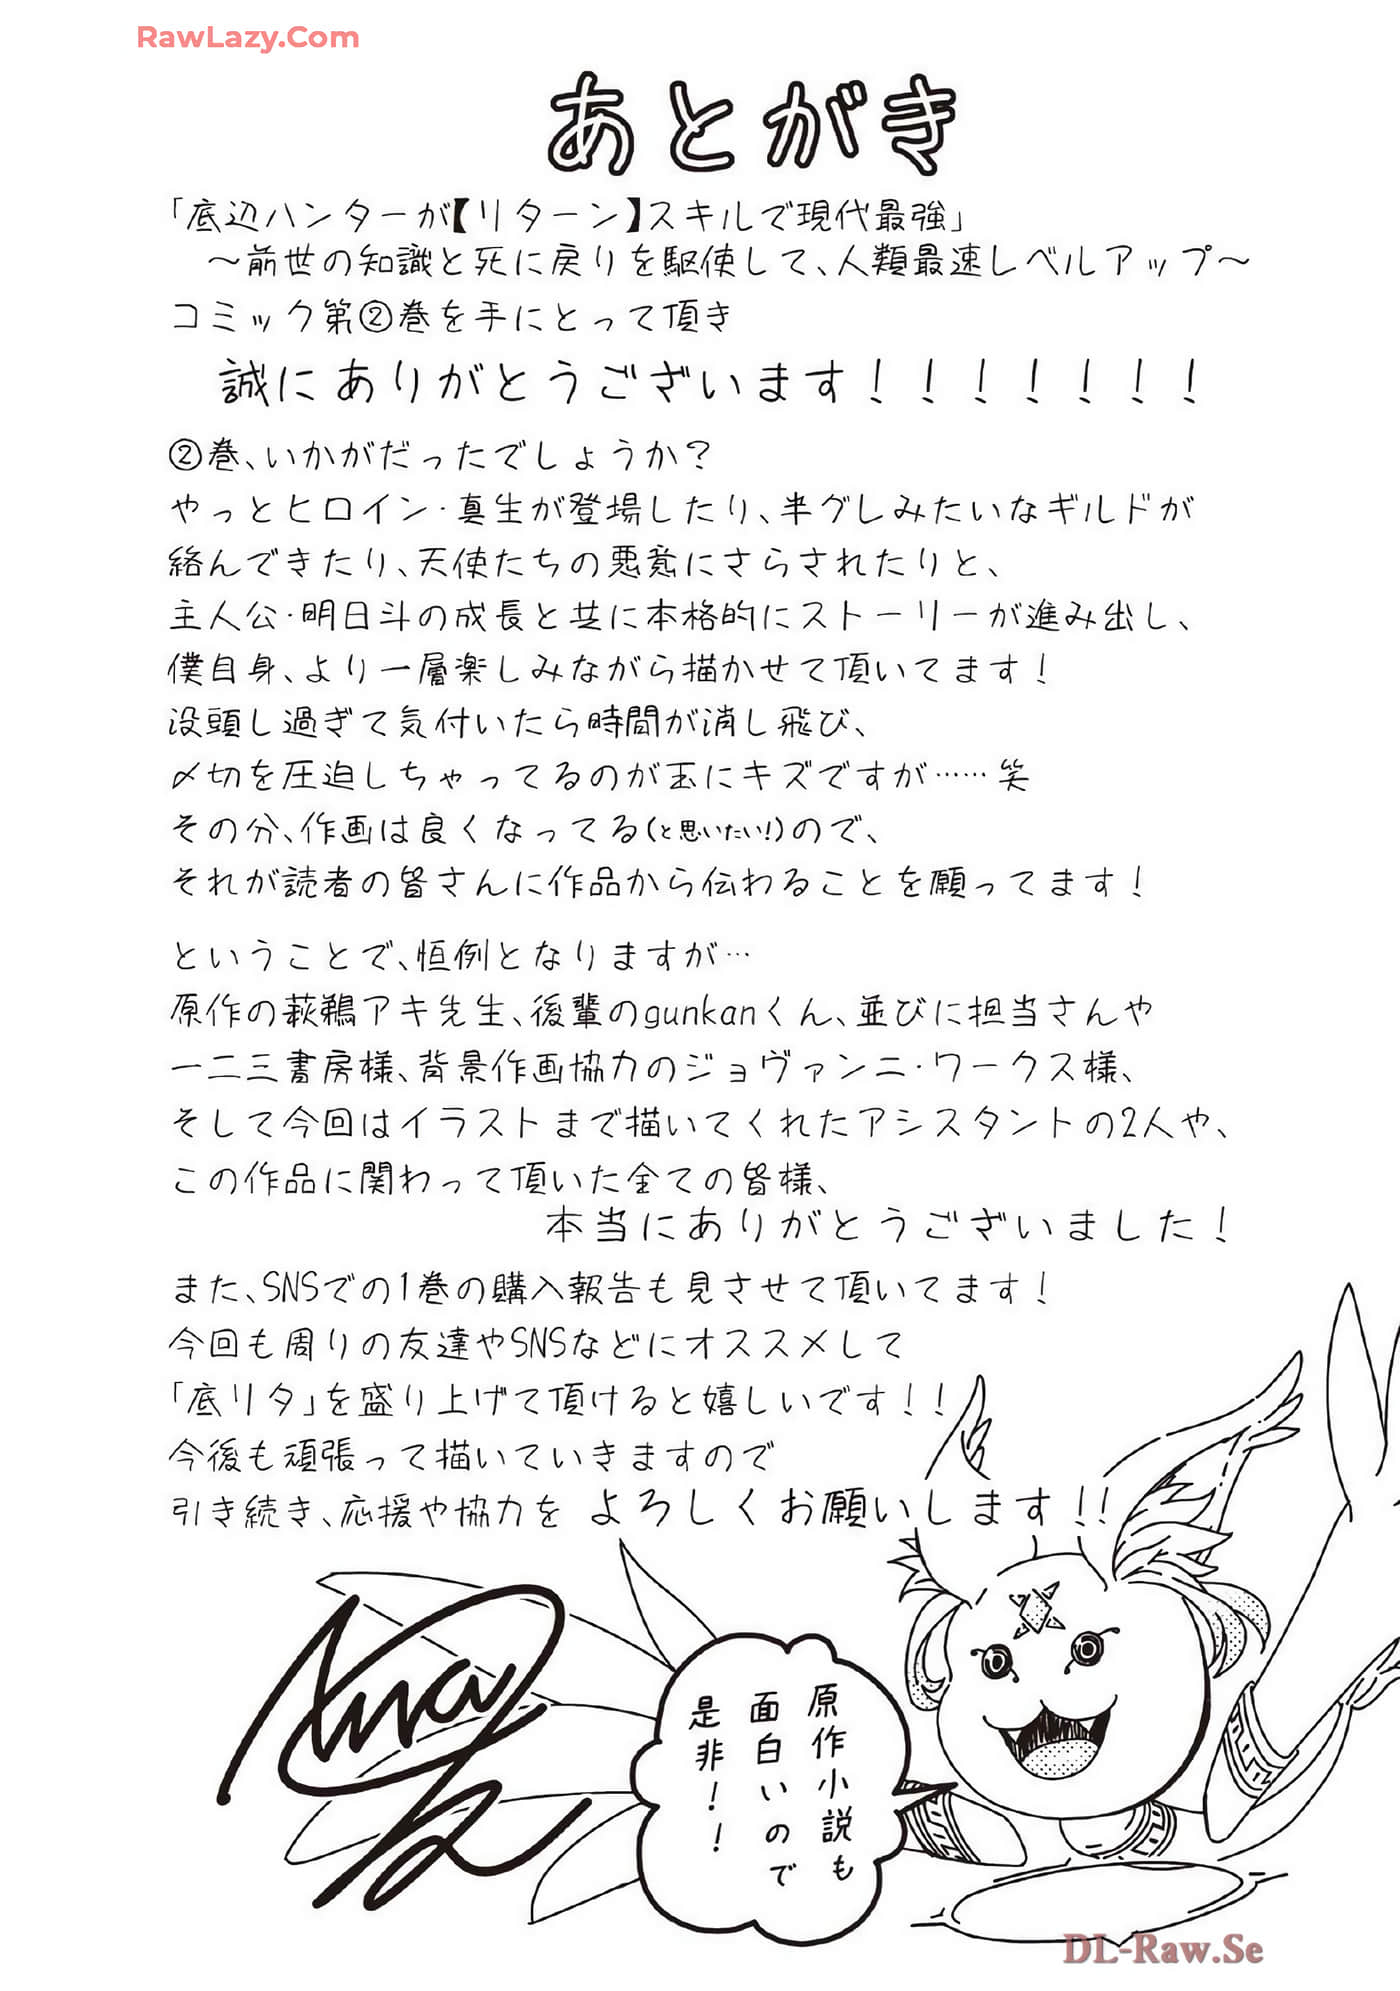 RawLazy.Com
あとがき
「底辺ハンターが【リターン】スキルで現代最強」
～前世の知識と死に戻りを駆使して、人類最速レベルアップ～
コミック第②巻を手にとって頂き
誠にありがとうございます！！！！！！！
②巻、いかがだったでしょうか？
やっとヒロイン・真生が登場したり、半グレみたいなギルドが
絡んできたり、天使たちの悪意にさらされたりと、
主人公・明日斗の成長と共に本格的にストーリーが進み出し、
僕自身、より一層楽しみながら描かせて頂いてます！
没頭し過ぎて気付いたら時間が消し飛び、
〆切を圧迫しちゃってるのが玉にキズですが……笑
その分、作画は良くなってる(と思いたい!)ので、
それが読者の皆さんに作品から伝わることを願ってます！
ということで、恒例となりますが…
原作の萩鵜アキ先生、後輩のgunkanくん、並びに担当さんや
一二三書房様、背景作画協力のジョヴァンニ・ワークス様、
そして今回はイラストまで描いてくれたアシスタントの2人や、
この作品に関わって頂いた全ての皆様、
本当にありがとうございました！
また、SNSでの1巻の購入報告も見させて頂いてます！
今回も周りの友達やSNSなどにオススメして
「底リタ」を盛り上げて頂けると嬉しいです！！
今後も頑張って描いていきますので
引き続き、応援や協力を よろしくお願いします!!
原作小説も
面白いので
是非！！
DL-Raw.Se